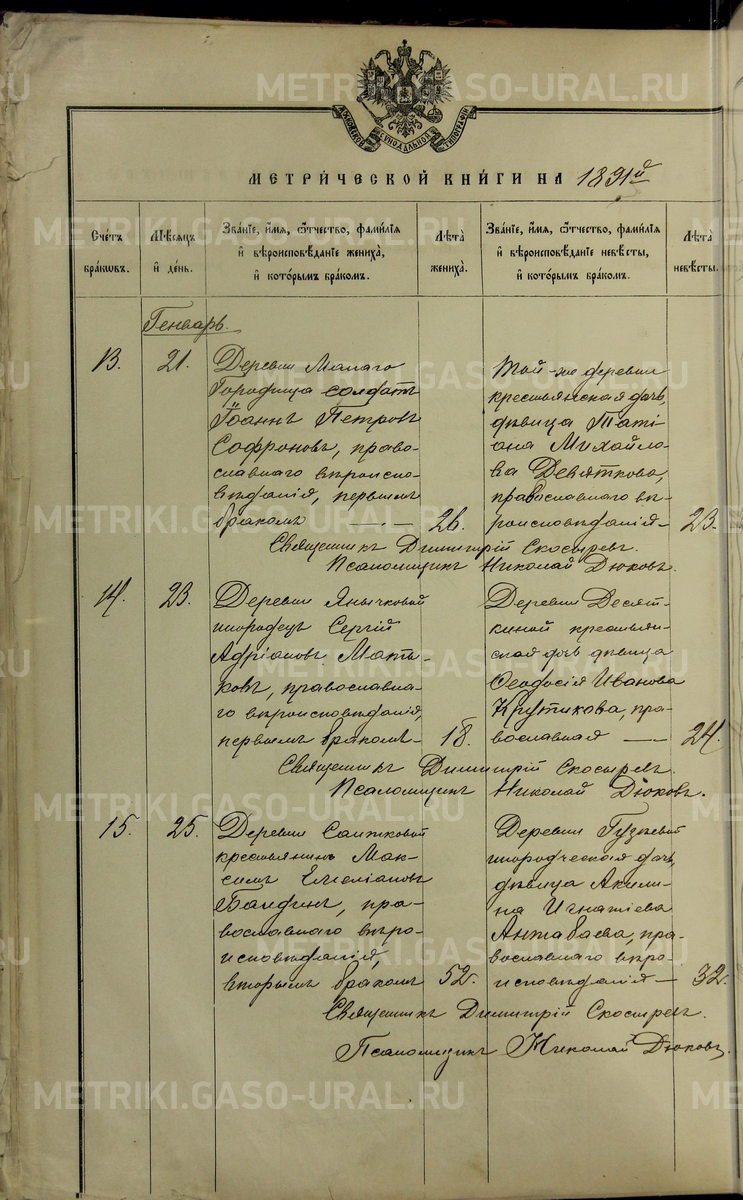 METRIKI.GASO-URAL.RU
МОСКОВСКОЙ СѴНОДАЛЬНОЙ ТИПОГРАФІИ
МЕТРИ́ЧЕСКОЙ КНИ́ГИ НА 1891й
Сче́тъ бра́кωвъ.
Мѣ́сяцъ и҆ де́нь.
Зва́нїе, и҆́мя, ѻ҆́тчество, фами́лїя и҆ вѣроисповѣ́данїе жениха̀, и҆ кото́рымъ бра́комъ.
Лѣ́та жениха̀.
Зва́нїе, и҆́мя, ѻ҆́тчество, фами́лїя и҆ вѣроисповѣ́данїе невѣ́сты, и҆ кото́рымъ бра́комъ.
Лѣ́та невѣ́сты.
Генварь.
13. 21.
Деревни Малаго
Городища солдатъ
Іоаннъ Петровъ
Софроновъ, право-
славнаго вѣроиспо-
вѣданія, первымъ
бракомъ 26.
Той-же деревни
крестьянская дочь,
дѣвица Таті-
ана Михайло-
ва Девяткова,
православнаго вѣ-
роисповѣданія 23.
Священникъ Димитрій Скосыревъ.
Псаломщикъ Николай Дюковъ.
14. 23.
Деревни Янычковой
инородецъ Сергій
Адріановъ Маты-
ковъ, православна-
го вѣроисповѣданія,
первымъ бракомъ 18.
Деревни Десят-
киной крестьян-
ская дочь дѣвица
Ѳеодосія Иванова
Крутикова, пра-
вославная 24.
Священникъ Димитрій Скосыревъ.
Псаломщикъ Николай Дюковъ.
15. 25.
Деревни Саитковой
крестьянинъ Мак-
симъ Емеліановъ
Балдинъ, пра-
вославнаго вѣро-
исповѣданія,
вторымъ бракомъ 52.
Деревни Гузѣевой
инородческая дочь,
дѣвица Акили-
на Игнатіева
Антабаева, пра-
вославнаго вѣро-
исповѣданія 32.
Священникъ Димитрій Скосыревъ.
Псаломщикъ Николай Дюковъ.